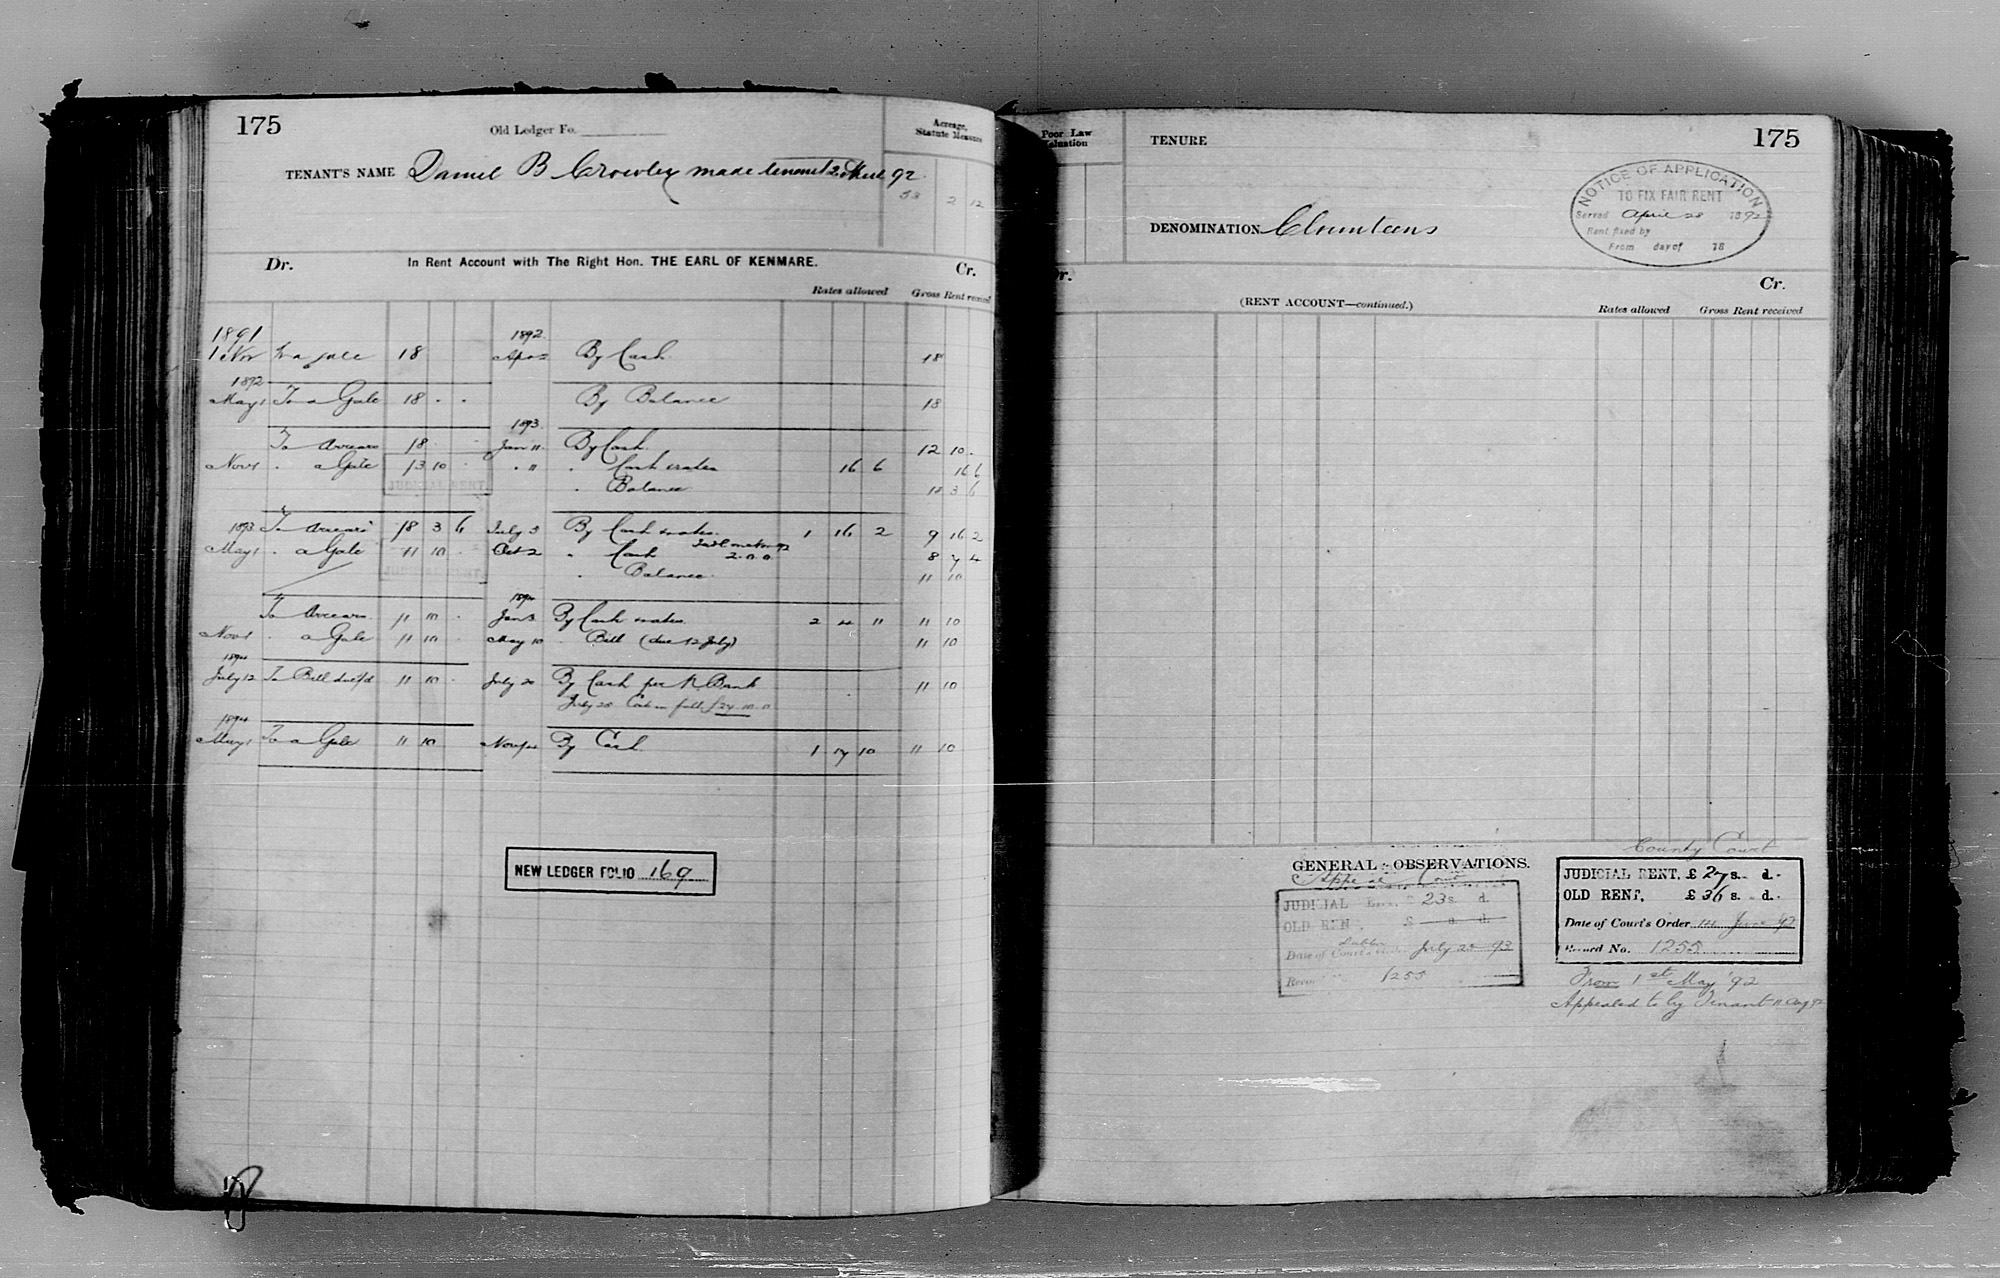 175
Old Ledger Fo.
Acreage,
Statute Measure
TENANT'S NAME Daniel B Crowley made tenant 2 92
53 2 12
Dr. In Rent Account with The Right Hon. THE EARL OF KENMARE. Cr.
Rates allowed Gross Rent received
1891 1892
1 Nov To a gale 18 Apr 2 By Cash 18
1892
May 1 To a Gale 18 - - By Balance 18
1893
To Arrears 18 Jan 11 By Cash 12 10 -
Nov 1 " a Gale 13 10 - " 11 " Cash & rates 16 6 16 6
JUDICIAL RENT " Balance 18 3 6
1893 To Arrears 18 3 6 July 3 By Cash & rates 1 16 2 9 16 2
May 1 " a Gale 11 10 - Oct 2 " Cash 2.0.0 8 7 4
JUDICIAL RENT " Balance 11 10
1894
To Arrears 11 10 - Jan 3 By Cash & rates 2 4 11 11 10
Nov 1 " a Gale 11 10 - May 10 " Bill (due 12 July) 11 10
1894
July 12 To Bill due 11 10 - July 20 By Cash per N. Bank 11 10
July 25 Costs in full £24.10.0
1894
May 1 To a Gale 11 10 Nov 14 By Cash 1 17 10 11 10
NEW LEDGER FOLIO 169
Poor Law
Valuation
TENURE 175
NOTICE OF APPLICATION
TO FIX FAIR RENT
Served April 28 1892
Rent fixed by
From day of 18
DENOMINATION Clounteens
Dr. Cr.
(RENT ACCOUNT—continued.) Rates allowed Gross Rent received
GENERAL OBSERVATIONS.
Appeal Court
JUDICIAL RENT, £ 23 s. d.
OLD RENT, £ s. d.
Dublin
Date of Court's Order July 25 93
Record No. 1255
County Court
JUDICIAL RENT, £ 27 s. - d. -
OLD RENT, £ 36 s. - d. -
Date of Court's Order June 92
Record No. 1255
From 1st May '92
Appealed to by Tenant 11 Aug 92